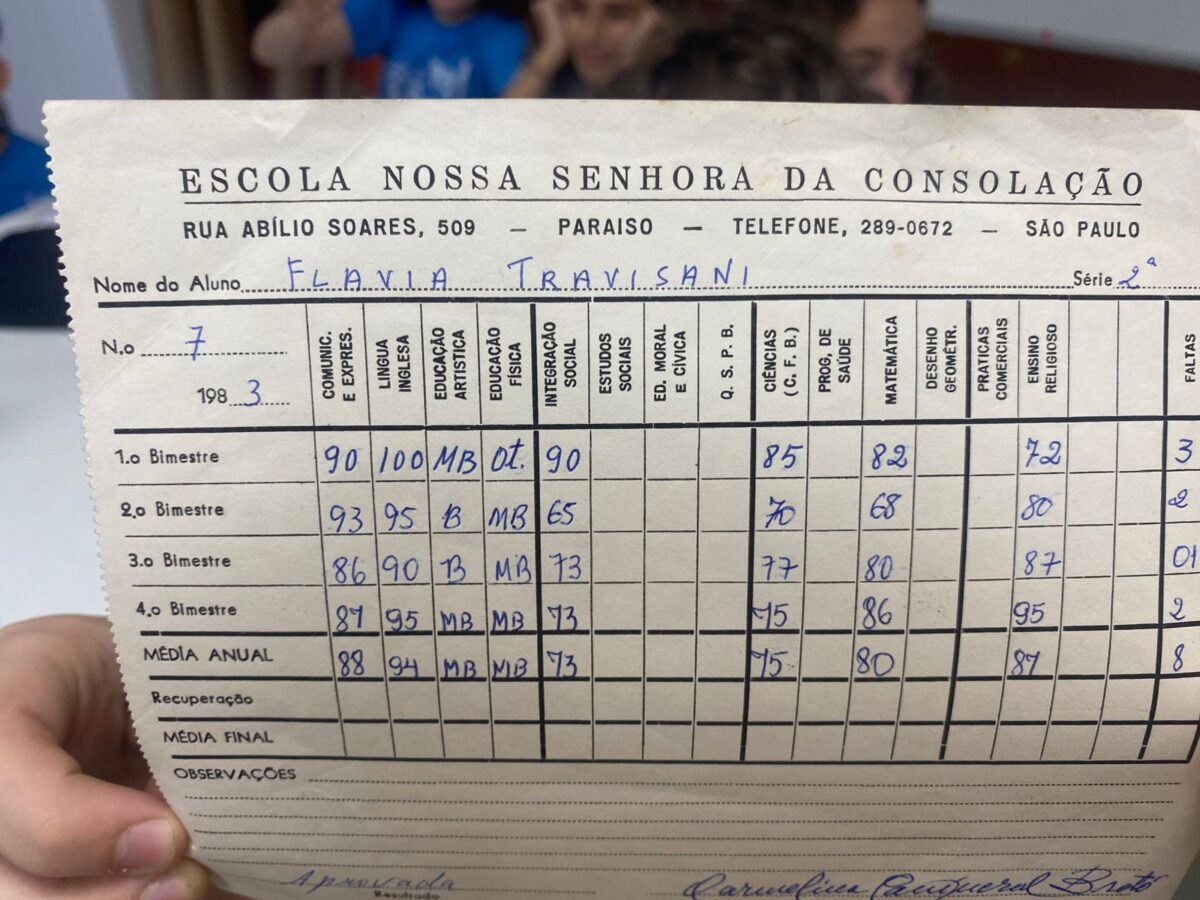 ESCOLA NOSSA SENHORA DA CONSOLAÇÃO
RUA ABÍLIO SOARES, 509 — PARAISO — TELEFONE, 289-0672 — SÃO PAULO
Nome do Aluno FLAVIA TRAVISANI Série 2ª
N.o 7
198 3
COMUNIC. E EXPRES.
LINGUA INGLESA
EDUCAÇÃO ARTISTICA
EDUCAÇÃO FÍSICA
INTEGRAÇÃO SOCIAL
ESTUDOS SOCIAIS
ED. MORAL E CÍVICA
O. S. P. B.
CIÊNCIAS (C. F. B.)
PROG, DE SAÚDE
MATEMÁTICA
DESENHO GEOMÉTR.
PRATICAS COMERCIAIS
ENSINO RELIGIOSO
FALTAS
1.o Bimestre 90 100 MB Ot. 90 85 82 72 3
2.o Bimestre 93 95 B MB 65 70 68 80 2
3.o Bimestre 86 90 B MB 73 77 80 87 01
4.o Bimestre 87 95 MB MB 73 75 86 95 2
MÉDIA ANUAL 88 94 MB MB 73 75 80 87 8
Recuperação
MÉDIA FINAL
OBSERVAÇÕES
Aprovada Carmelina
Resultado